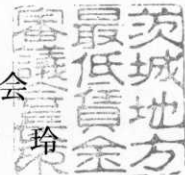 茨城地方
最低賃金
審議
会
玲